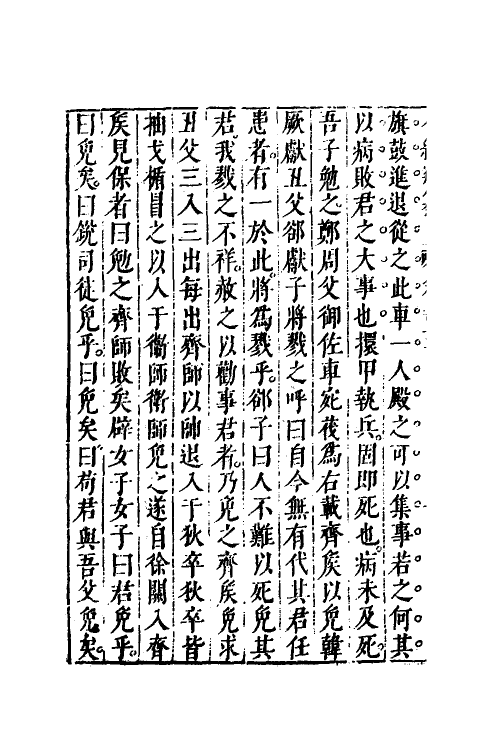 旗鼓進退從之此車一人殿之可以集事若之何其
以病敗君之大事也擐甲執兵固即死也病未及死
吾子勉之鄭周父御佐車宛茷為右載齊矦以免韓
厥獻丑父郤獻子將戮之呼曰自今無有代其君任
患者有一於此將為戮乎郤子曰人不難以死免其
君我戮之不祥赦之以勸事君者乃免之齊矦免求
丑父三入三出每出齊師以帥退入于狄卒狄卒皆
抽戈楯冒之以入于衞師衞師免之遂自徐關入齊
矦見保者曰勉之齊師敗矣辟女子女子曰君免乎
曰免矣曰銳司徒免乎曰免矣曰苟君與吾父免矣